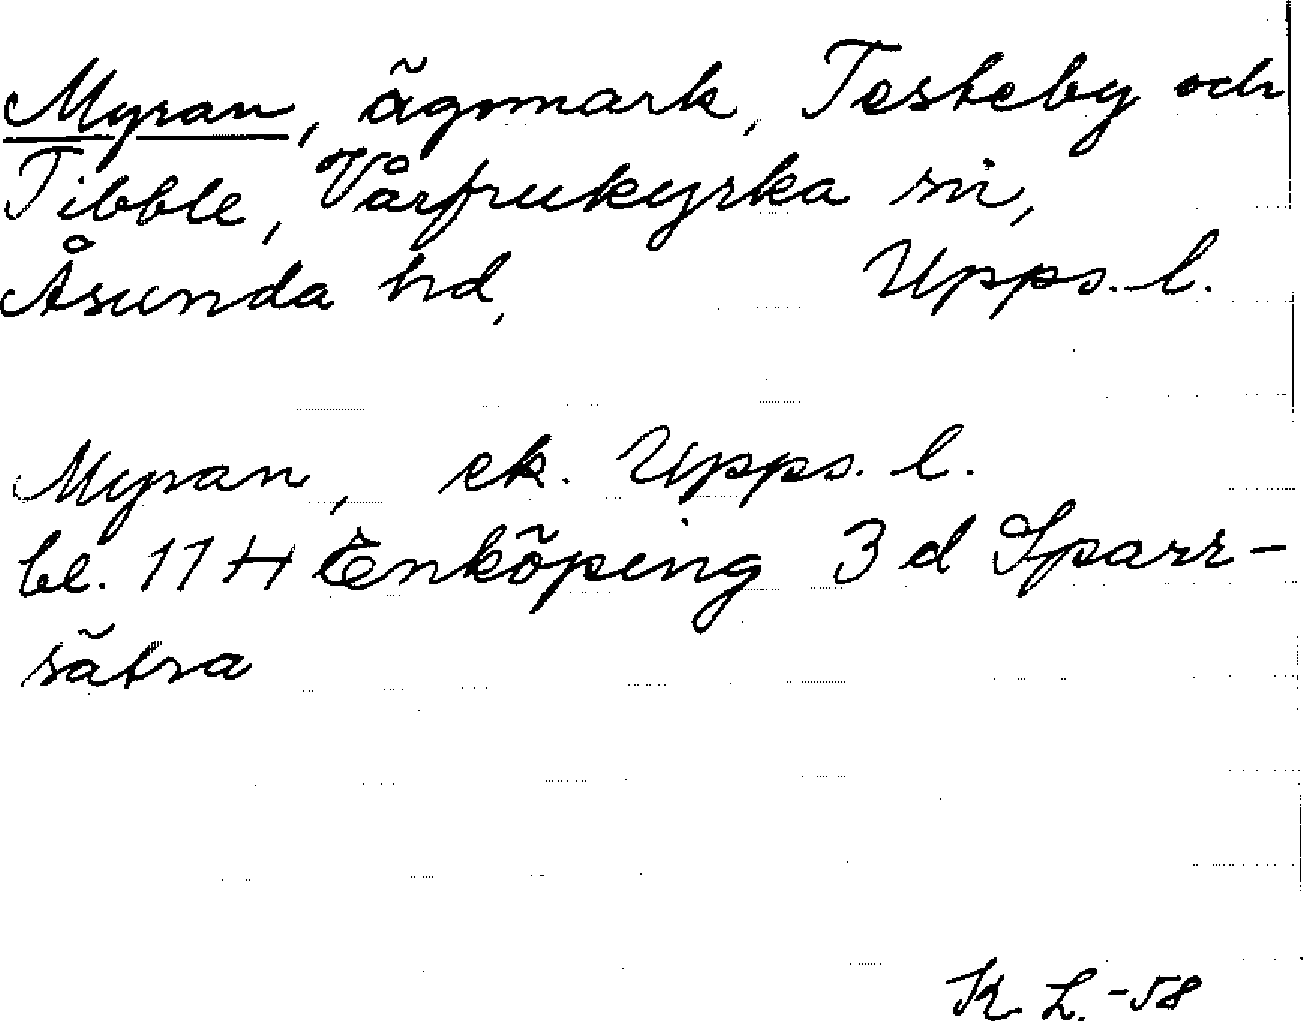 Myran, ägomark, Testeby och
Tibble, Vårfrukyrka sn,
Åsunda hd, Upps. l.
Myran, ek. Upps. l.
bl. 11 H Enköping 3 d Sparr-
sätra
K. L. -58